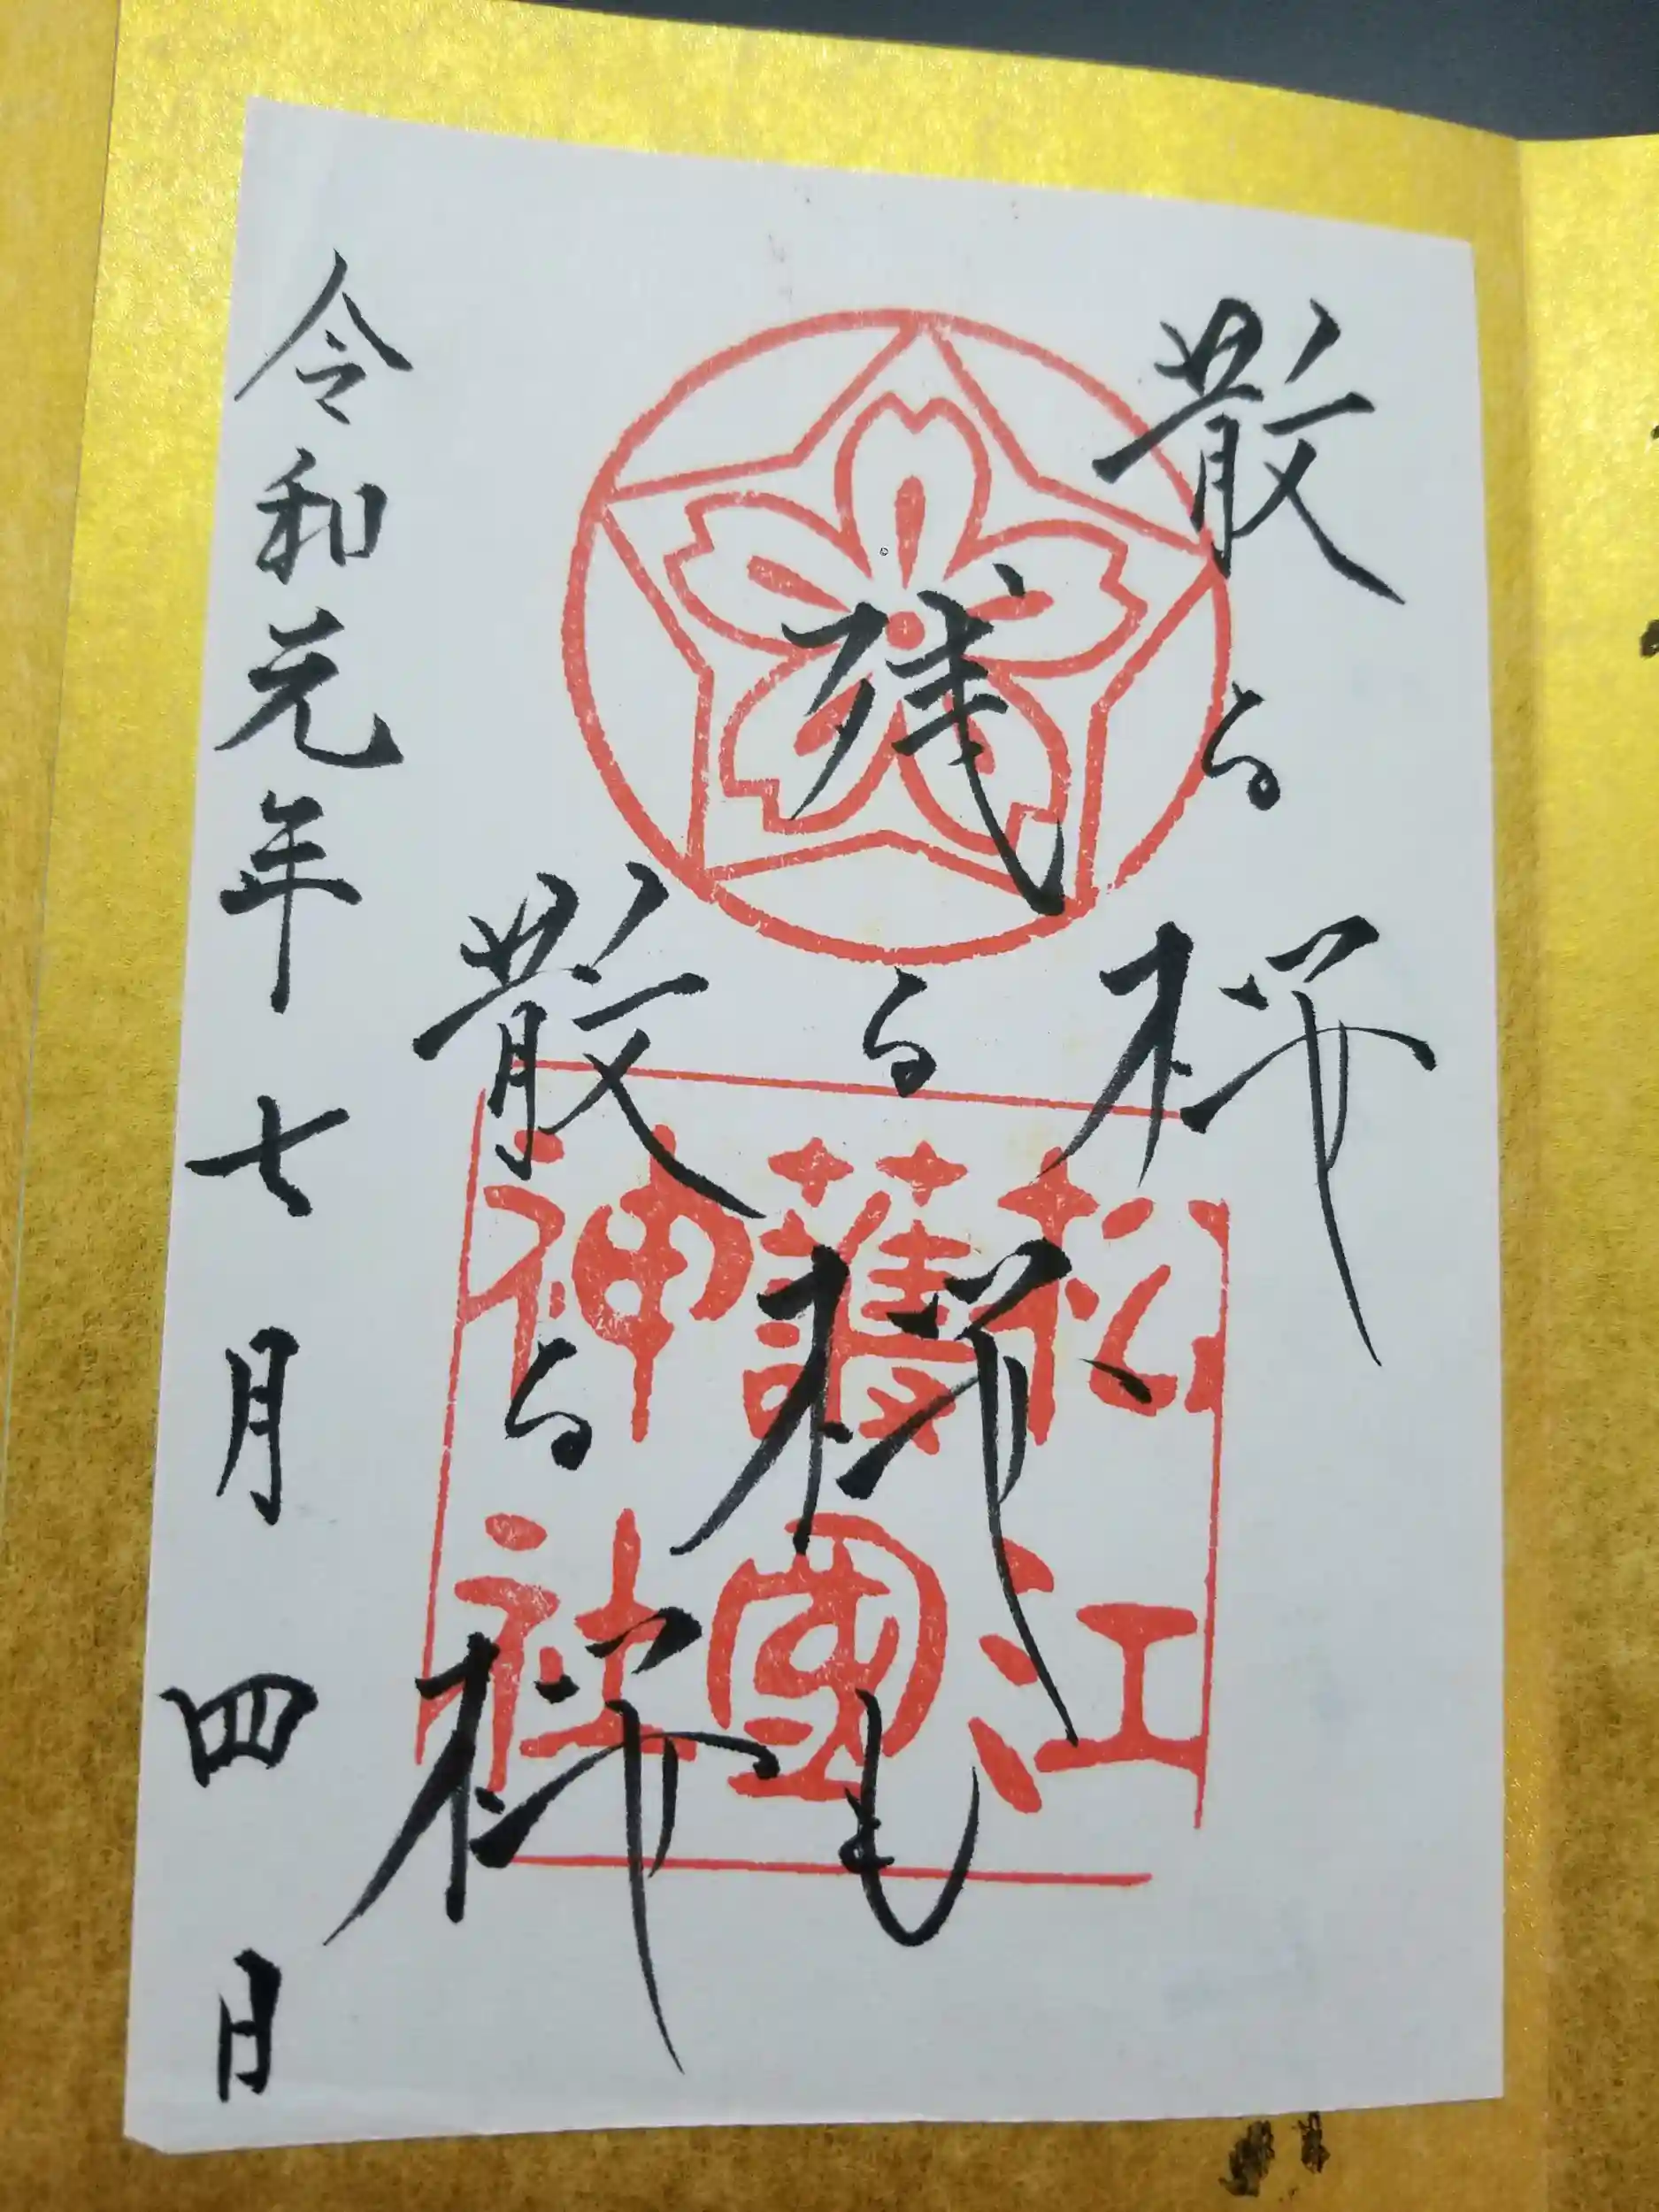 散る桜
残る桜も
散る桜
松江
護國
神社
令和元年七月四日